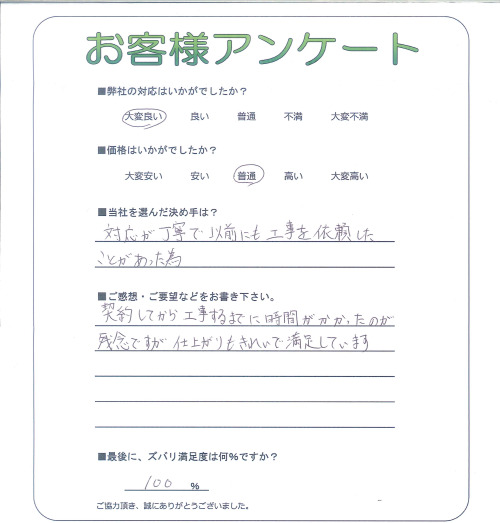 お客様アンケート
■弊社の対応はいかがでしたか？
大変良い 良い 普通 不満 大変不満
■価格はいかがでしたか？
大変安い 安い 普通 高い 大変高い
■当社を選んだ決め手は？
対応が丁寧で以前にも工事を依頼した
ことがあった為
■ご感想・ご要望などをお書き下さい。
契約してから工事するまでに時間がかかったのが
残念ですが仕上がりもきれいで満足しています
■最後に、ズバリ満足度は何%ですか？
100 %
ご協力頂き、誠にありがとうございました。